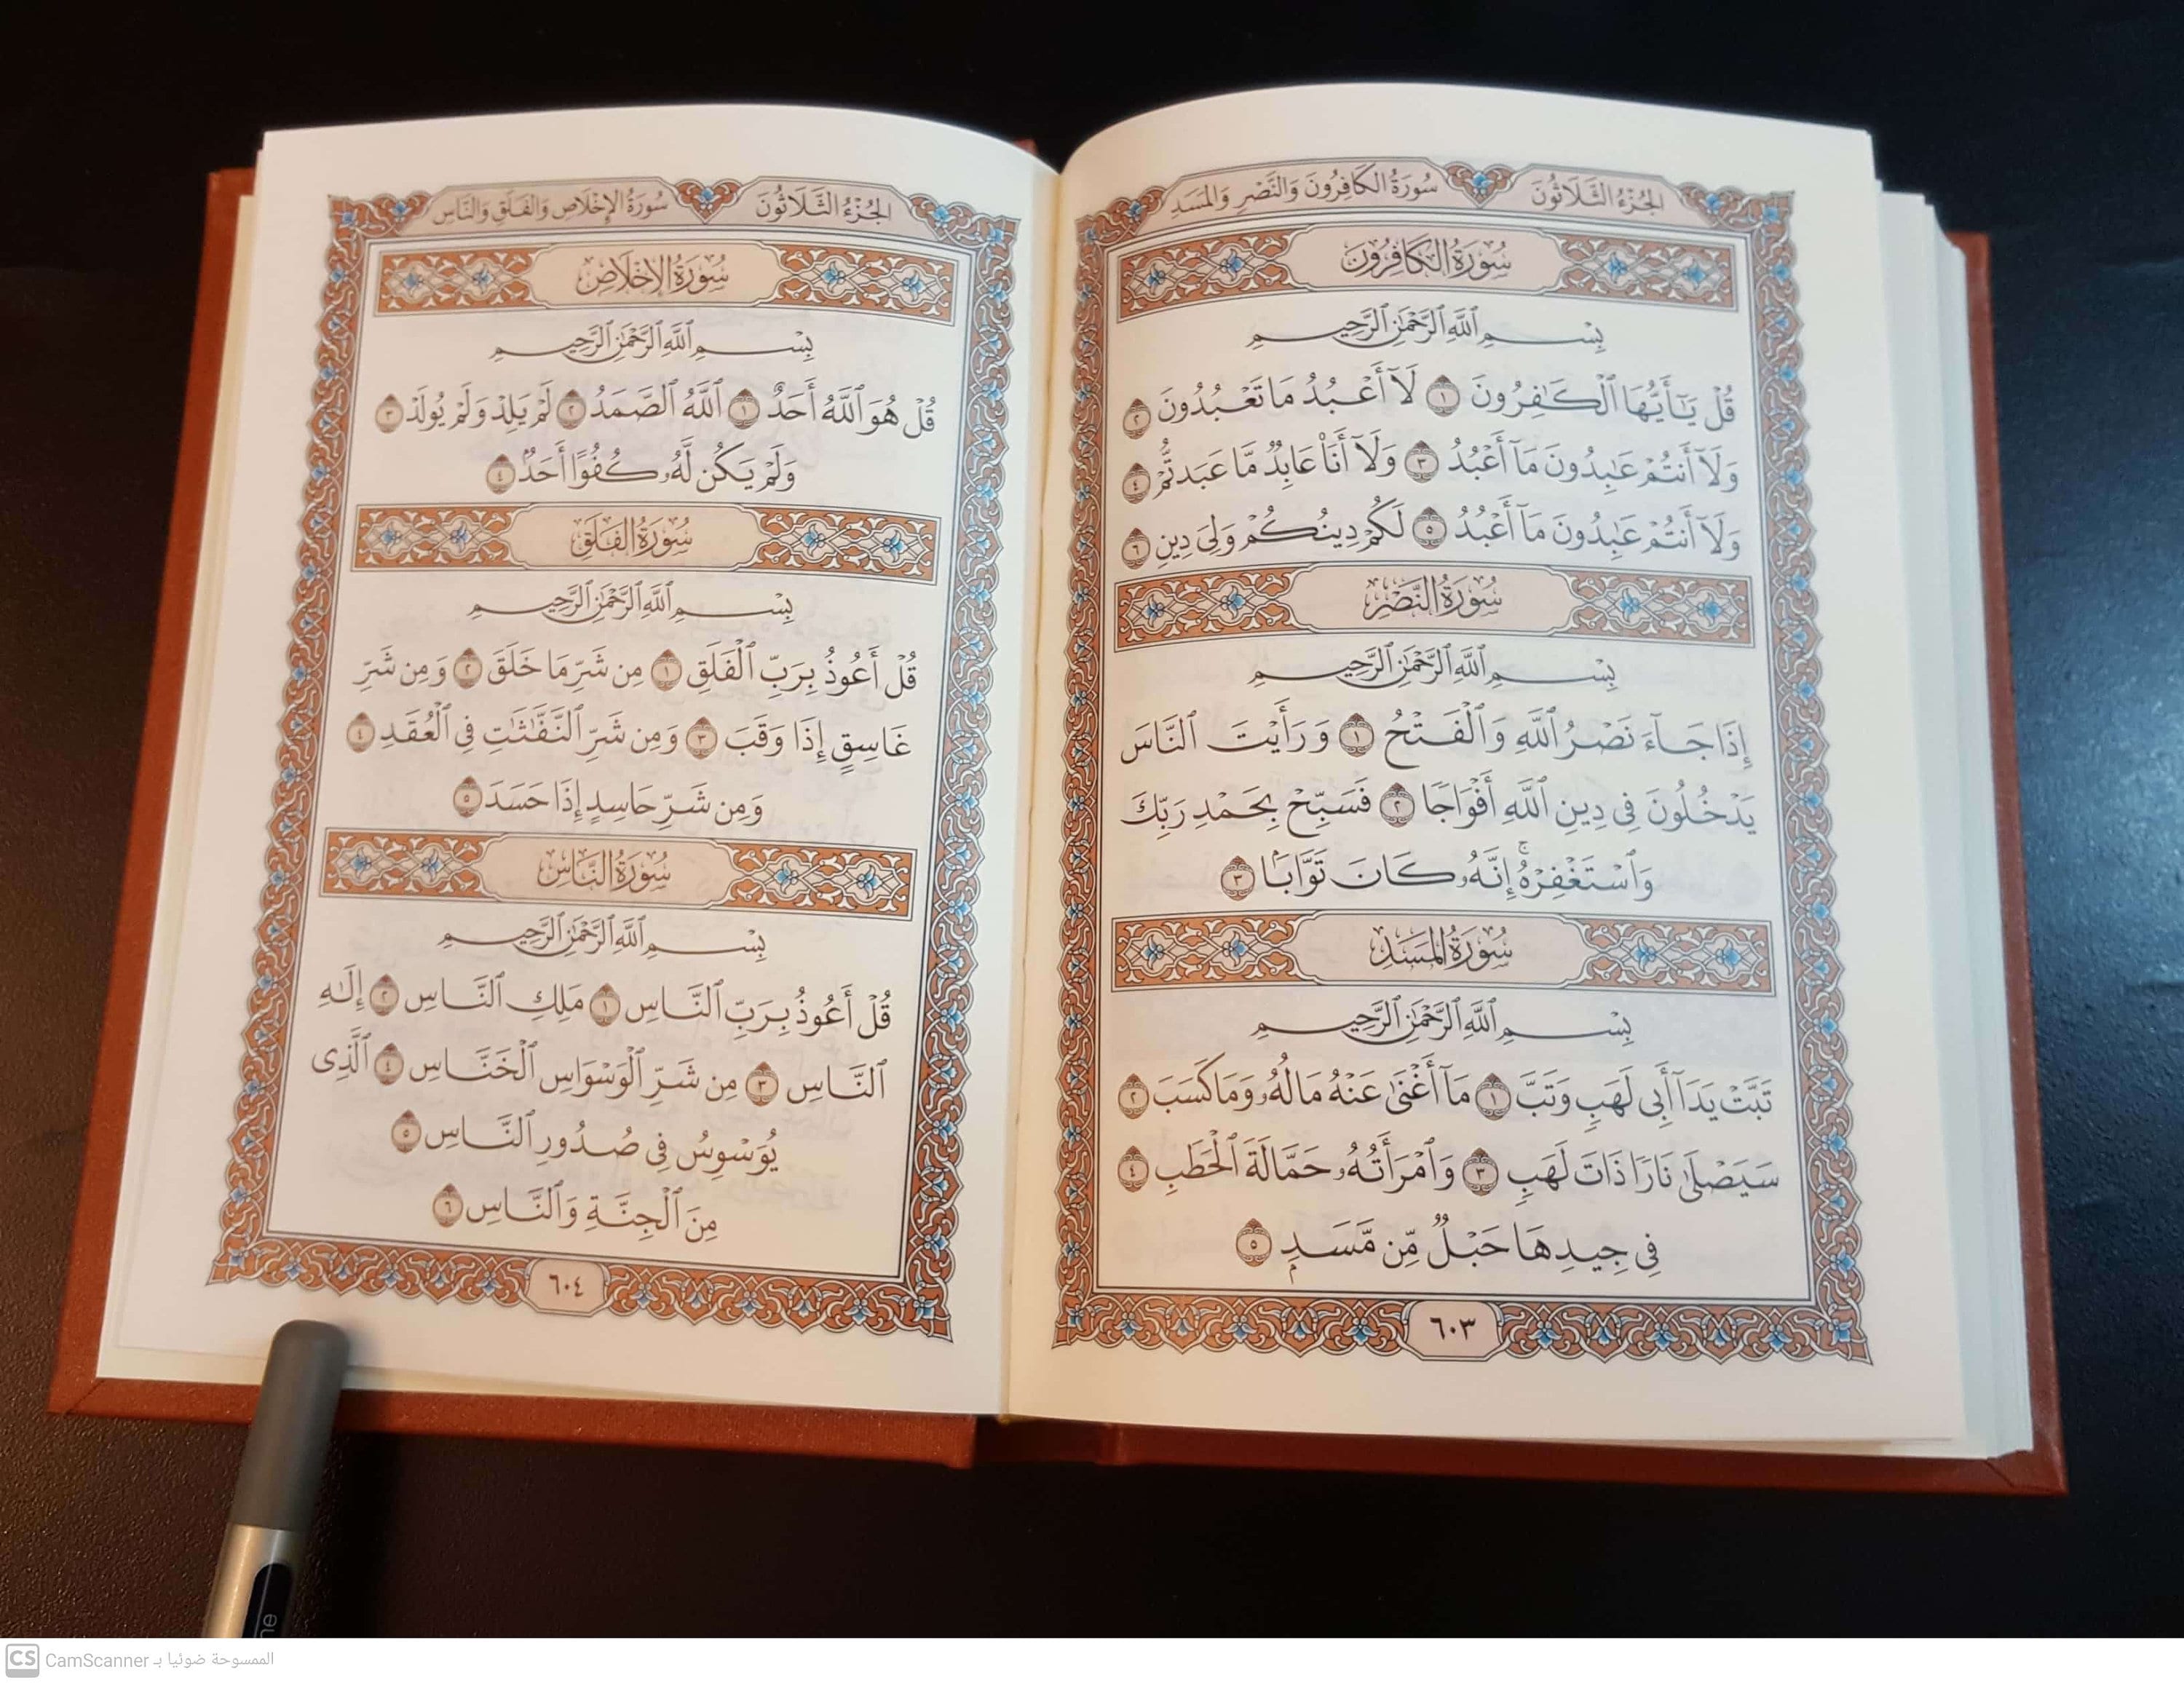 الجُزْءُ الثَّلَاثُونَ
سُورَةُ الكَافِرُونَ وَالنَّصْرِ وَالمَسَدِ
سُورَةُ الكَافِرُونَ
بِسْمِ ٱللَّهِ ٱلرَّحْمَٰنِ ٱلرَّحِيمِ
قُلْ يَٰٓأَيُّهَا ٱلْكَٰفِرُونَ ١ لَآ أَعْبُدُ مَا تَعْبُدُونَ ٢
وَلَآ أَنتُمْ عَٰبِدُونَ مَآ أَعْبُدُ ٣ وَلَآ أَنَا۠ عَابِدٌ مَّا عَبَدتُّمْ ٤
وَلَآ أَنتُمْ عَٰبِدُونَ مَآ أَعْبُدُ ٥ لَكُمْ دِينُكُمْ وَلِىَ دِينِ ٦
سُورَةُ النَّصْرِ
بِسْمِ ٱللَّهِ ٱلرَّحْمَٰنِ ٱلرَّحِيمِ
إِذَا جَآءَ نَصْرُ ٱللَّهِ وَٱلْفَتْحُ ١ وَرَأَيْتَ ٱلنَّاسَ
يَدْخُلُونَ فِى دِينِ ٱللَّهِ أَفْوَاجًا ٢ فَسَبِّحْ بِحَمْدِ رَبِّكَ
وَٱسْتَغْفِرْهُ ۚ إِنَّهُۥ كَانَ تَوَّابًۢا ٣
سُورَةُ المَسَدِ
بِسْمِ ٱللَّهِ ٱلرَّحْمَٰنِ ٱلرَّحِيمِ
تَبَّتْ يَدَآ أَبِى لَهَبٍ وَتَبَّ ١ مَآ أَغْنَىٰ عَنْهُ مَالُهُۥ وَمَا كَسَبَ ٢
سَيَصْلَىٰ نَارًا ذَاتَ لَهَبٍ ٣ وَٱمْرَأَتُهُۥ حَمَّالَةَ ٱلْحَطَبِ ٤
فِى جِيدِهَا حَبْلٌ مِّن مَّسَدٍۭ ٥
٦٠٣
الجُزْءُ الثَّلَاثُونَ
سُورَةُ الإِخْلَاصِ وَالفَلَقِ وَالنَّاسِ
سُورَةُ الإِخْلَاصِ
بِسْمِ ٱللَّهِ ٱلرَّحْمَٰنِ ٱلرَّحِيمِ
قُلْ هُوَ ٱللَّهُ أَحَدٌ ١ ٱللَّهُ ٱلصَّمَدُ ٢ لَمْ يَلِدْ وَلَمْ يُولَدْ ٣
وَلَمْ يَكُن لَّهُۥ كُفُوًا أَحَدٌۢ ٤
سُورَةُ الفَلَقِ
بِسْمِ ٱللَّهِ ٱلرَّحْمَٰنِ ٱلرَّحِيمِ
قُلْ أَعُوذُ بِرَبِّ ٱلْفَلَقِ ١ مِن شَرِّ مَا خَلَقَ ٢ وَمِن شَرِّ
غَاسِقٍ إِذَا وَقَبَ ٣ وَمِن شَرِّ ٱلنَّفَّٰثَٰتِ فِى ٱلْعُقَدِ ٤
وَمِن شَرِّ حَاسِدٍ إِذَا حَسَدَ ٥
سُورَةُ النَّاسِ
بِسْمِ ٱللَّهِ ٱلرَّحْمَٰنِ ٱلرَّحِيمِ
قُلْ أَعُوذُ بِرَبِّ ٱلنَّاسِ ١ مَلِكِ ٱلنَّاسِ ٢ إِلَٰهِ
ٱلنَّاسِ ٣ مِن شَرِّ ٱلْوَسْوَاسِ ٱلْخَنَّاسِ ٤ ٱلَّذِى
يُوَسْوِسُ فِى صُدُورِ ٱلنَّاسِ ٥
مِنَ ٱلْجِنَّةِ وَٱلنَّاسِ ٦
٦٠٤
CS الممسوحة ضوئيا بـ CamScanner